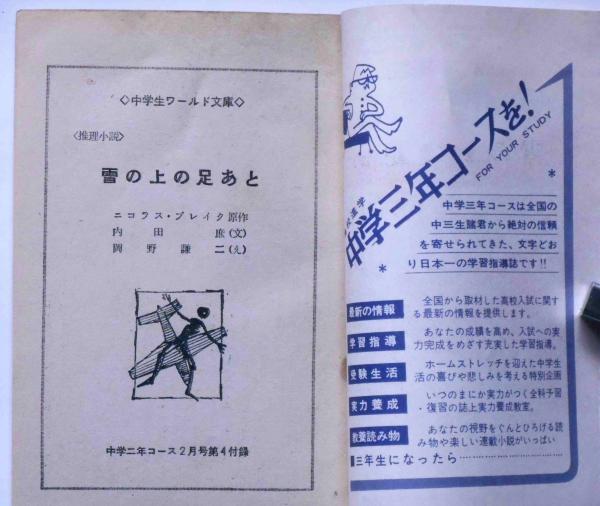 ◇中学生ワールド文庫◇
〈推理小説〉
雪の上の足あと
ニコラス・ブレイク原作
内田庶(文)
岡野謙二(え)
中学二年コース2月号第4付録
中学三年コースを!
FOR YOUR STUDY
*
中学三年コースは全国の
中三生諸君から絶対の信頼
を寄せられてきた、文字どお
り日本一の学習指導誌です!!
*
最新の情報
全国から取材した高校入試に関す
る最新の情報を提供します。
学習指導
あなたの成績を高め、入試への実
力完成をめざす充実した学習指導。
受験生活
ホームストレッチを迎えた中学生
活の喜びや悲しみを考える特別企画
実力養成
いつのまにか実力がつく全科予習
・復習の誌上実力養成教室。
教養読み物
あなたの視野をぐんとひろげる読
み物や楽しい連載小説がいっぱい
三年生になったら…………………